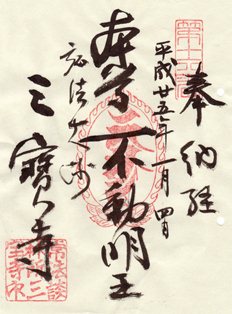 奉納経
平成廿五年一月四日
本尊不動明王
弘法大師
三寳寺